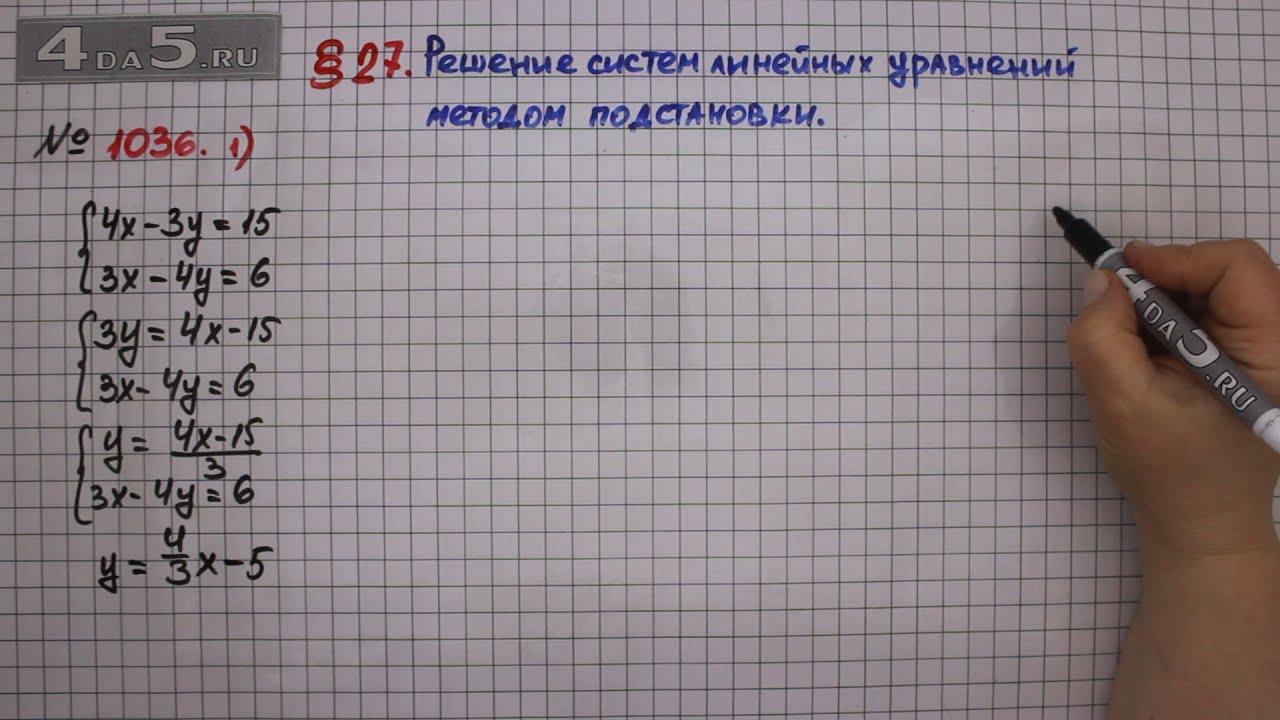 4DA5.RU
§ 27. Решение систем линейных уравнений
методом подстановки.
№ 1036. 1)
{4x-3y=15
{3x-4y=6
{3y=4x-15
{3x-4y=6
{y=(4x-15)/3
{3x-4y=6
y=4/3x-5
4DA5.RU